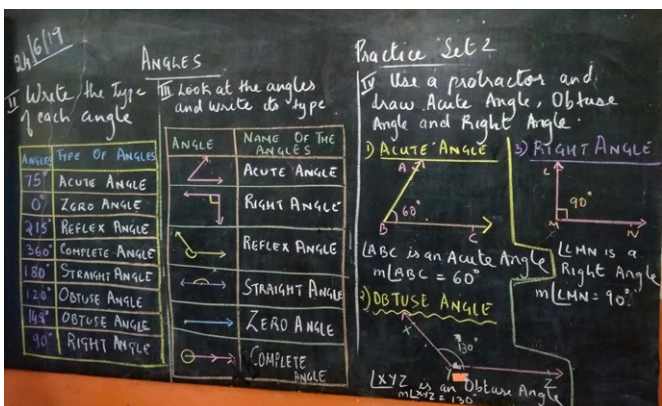 24/6/19
ANGLES
Practice Set 2
II Write the Type
of each angle
ANGLES TYPE OF ANGLES
75° ACUTE ANGLE
0° ZERO ANGLE
215° REFLEX ANGLE
360° COMPLETE ANGLE
180° STRAIGHT ANGLE
120° OBTUSE ANGLE
148° OBTUSE ANGLE
90° RIGHT ANGLE
III Look at the angles
and write its type
ANGLE NAME OF THE
ANGLES
ACUTE ANGLE
RIGHT ANGLE
REFLEX ANGLE
STRAIGHT ANGLE
ZERO ANGLE
COMPLETE
ANGLE
IV Use a protractor and
draw Acute Angle, Obtuse
Angle and Right Angle.
1) ACUTE ANGLE
A
60°
B C
∠ABC is an Acute Angle
m∠ABC = 60°
2) OBTUSE ANGLE
X
130°
Y Z
∠XYZ is an Obtuse Angle
m∠XYZ = 130°
3) RIGHT ANGLE
L
90°
M N
∠LMN is a
Right Angle
m∠LMN = 90°.